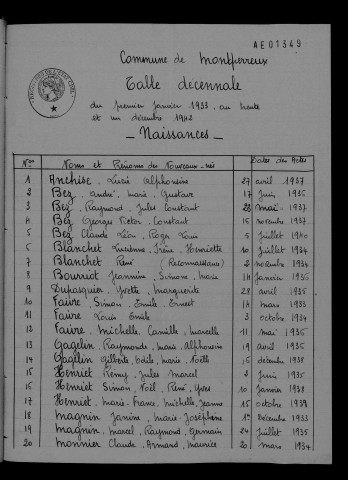 AE01349
Commune de Montperreux
Table décennale
du premier janvier 1933 au trente
et un décembre 1942
- Naissances -
Nos Noms et Prénoms des Nouveaux-nés Dates des Actes
1 Anchise, Lucie Alphonsine 27 avril 1937
2 Bez, andré, marie, Gustave 17 juin 1935
3 Bez, Raymond, Jules Constant 28 mai 1937
4 Bez Georges Victor Constant 15 novembre 1937
5 Bez Claude Léon, Roger Louis 5 juillet 1940
6 Blanchet Irène, Henriette 10 juillet 1934
7 Blanchet René (Reconnaissance) 2 novembre 1934
8 Bourriot Jeannine, Simone, Marie 14 janvier 1936
9 Dubasquier, Yvette, Marguerite 29 avril 1935
10 Faivre, Simon, Emile, Ernest 14 mars 1933
11 Faivre Louis Emile 3 octobre 1934
12 Faivre, Michelle, Camille, Marcelle 11 mai 1936
13 Gagelin, Raymonde, Marie, Alphonsine 19 avril 1935
14 Gagelin, Gilberte, Odile, Marie, Noëlle 16 décembre 1938
15 Henriet Remy, Jules, Marcel 2 juin 1935
16 Henriet Simon, Noël, René, Yves 10 janvier 1938
17 Henriet, Marie-France, Michelle, Jeanne 15 octobre 1939
18 Magnin, Janine, Marie-Joséphine 1er décembre 1933
19 Magnin, Marcel, Raymond, Germain 24 juillet 1935
20 Monnier Claude, Armand, Maurice 20 mars 1934